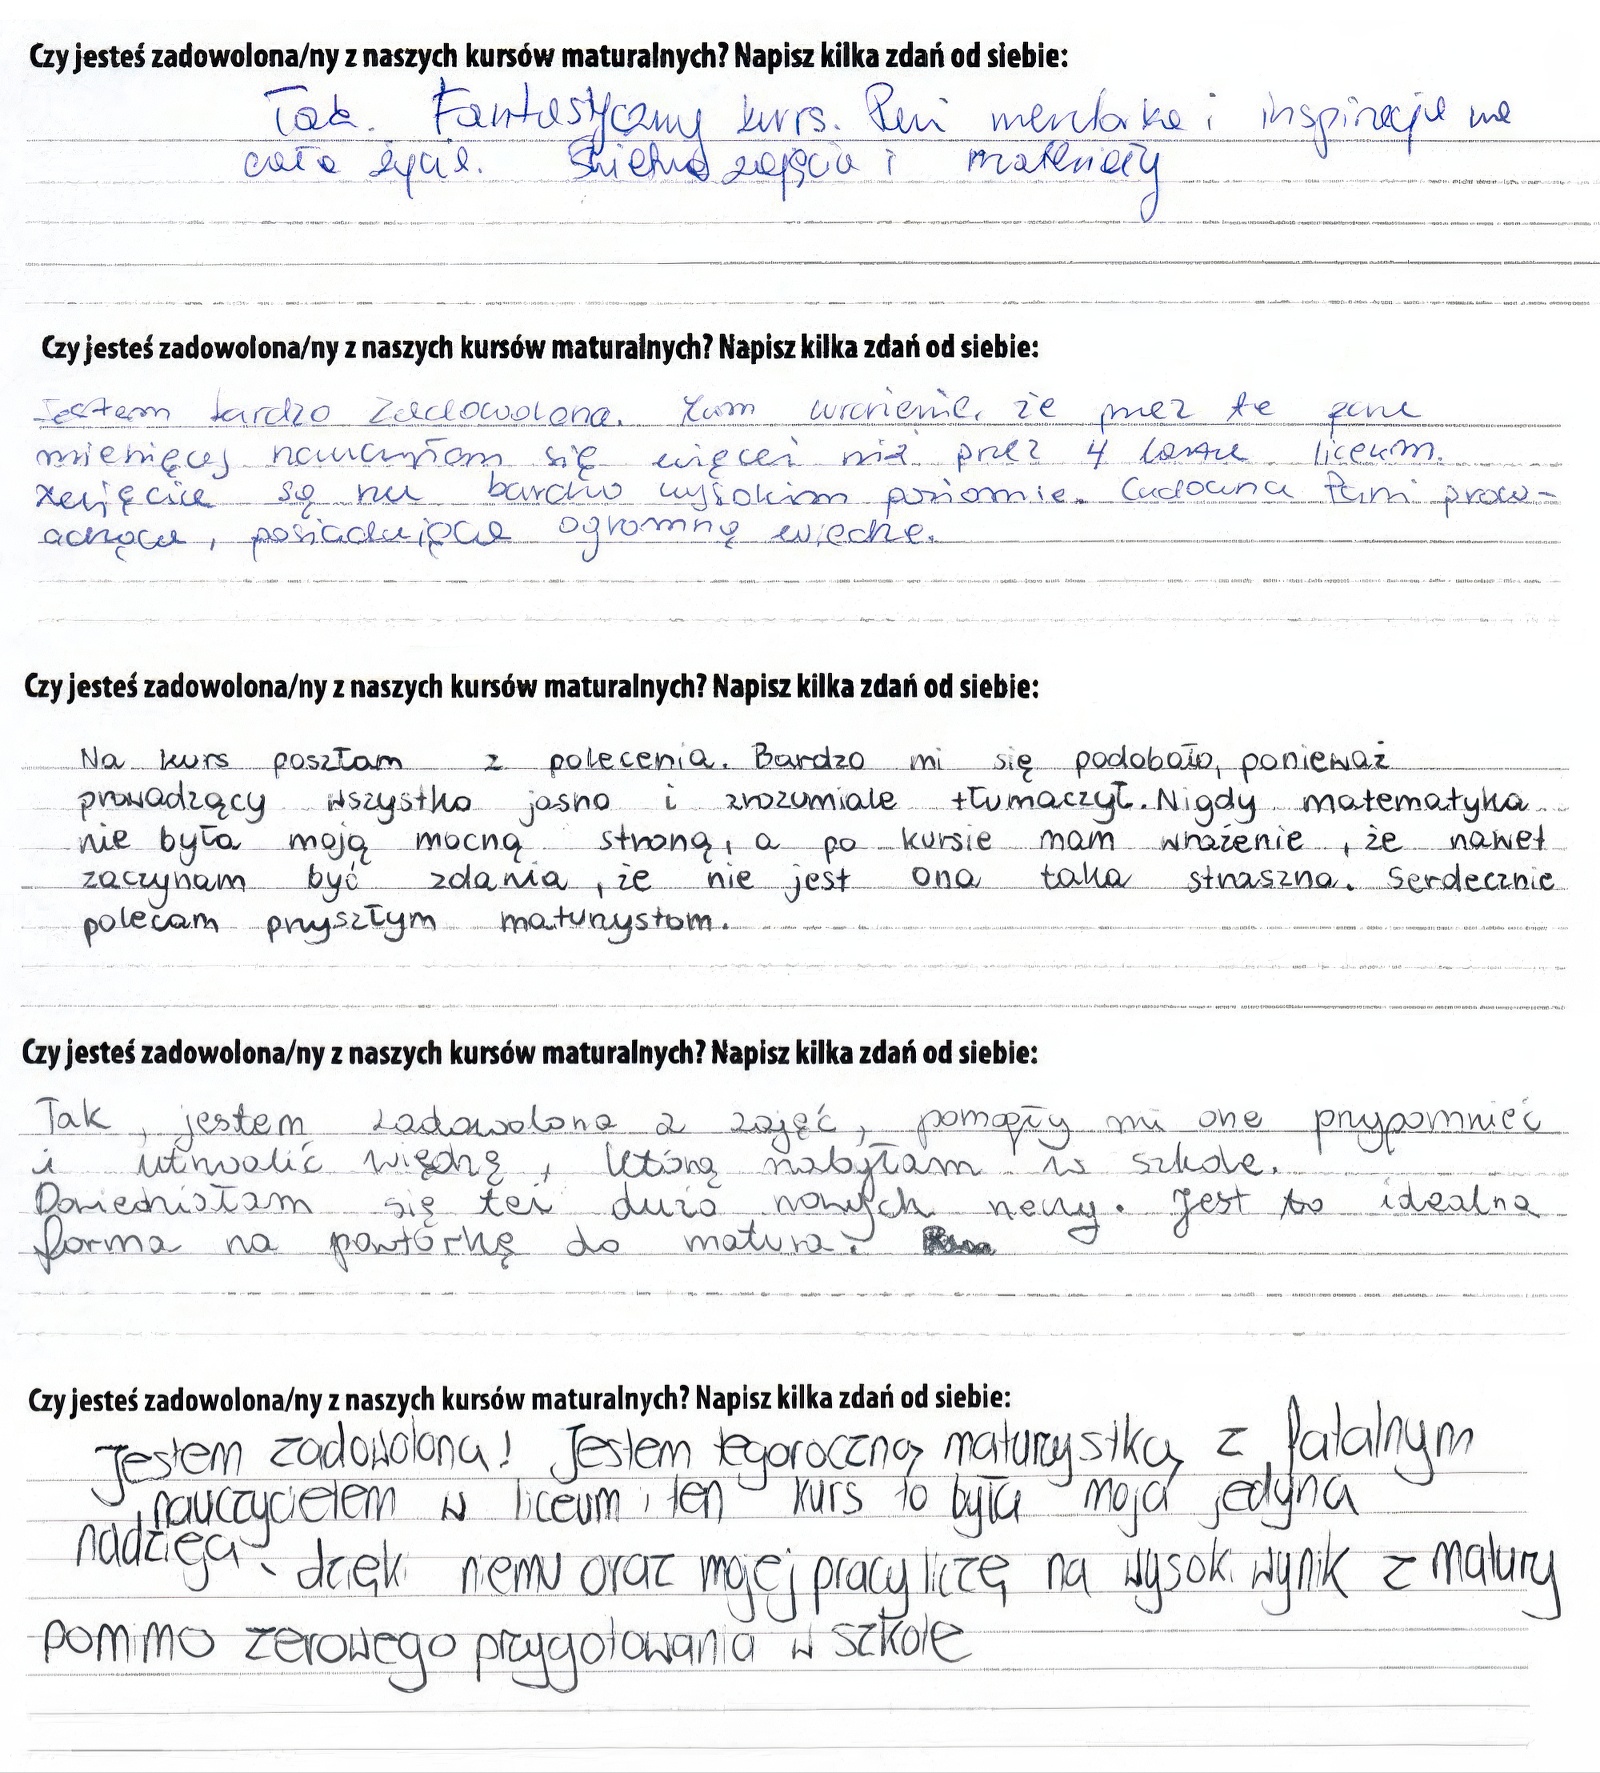 Czy jesteś zadowolona/ny z naszych kursów maturalnych? Napisz kilka zdań od siebie:
Tak. Fantastyczny kurs. Pani mentorka i inspiracja na
całe życie. Świetne zajęcia i materiały
Czy jesteś zadowolona/ny z naszych kursów maturalnych? Napisz kilka zdań od siebie:
Jestem bardzo zadowolona. Mam wrażenie, że przez te parę
miesięcy nauczyłam się więcej niż przez 4 lata liceum.
Zajęcia są na bardzo wysokim poziomie. Cudowna Pani prow-
adząca, posiadająca ogromną wiedzę.
Czy jesteś zadowolona/ny z naszych kursów maturalnych? Napisz kilka zdań od siebie:
Na kurs poszłam z polecenia. Bardzo mi się podobało, ponieważ
prowadzący wszystko jasno i zrozumiale tłumaczył. Nigdy matematyka
nie była moją mocną stroną, a po kursie mam wrażenie, że nawet
zaczynam być zdania, że nie jest ona taka straszna. Serdecznie
polecam przyszłym maturzystom.
Czy jesteś zadowolona/ny z naszych kursów maturalnych? Napisz kilka zdań od siebie:
Tak, jestem zadowolona z zajęć, pomogły mi one przypomnieć
i utrwalić wiedzę, którą nabyłam w szkole.
Dowiedziałam się też dużo nowych rzeczy. Jest to idealna
forma na powtórkę do matura.
Czy jesteś zadowolona/ny z naszych kursów maturalnych? Napisz kilka zdań od siebie:
Jestem zadowolona! Jestem tegoroczną maturzystką z fatalnym
nauczycielem w liceum i ten kurs to była moja jedyna
nadzieja, dzięki niemu oraz mojej pracy liczę na wysoki wynik z matury
pomimo zerowego przygotowania w szkole